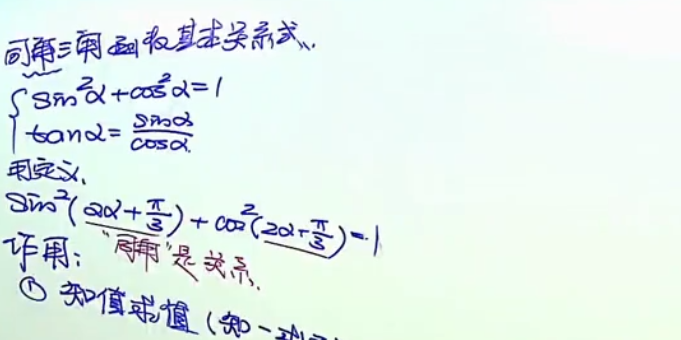 同角三角函数基本关系式.
sin²α+cos²α=1
tanα=sinα/cosα
用定义.
sin²(2α+π/3)+cos²(2α+π/3)=1
"同角"是关系.
作用:
① 知值求值(知一求